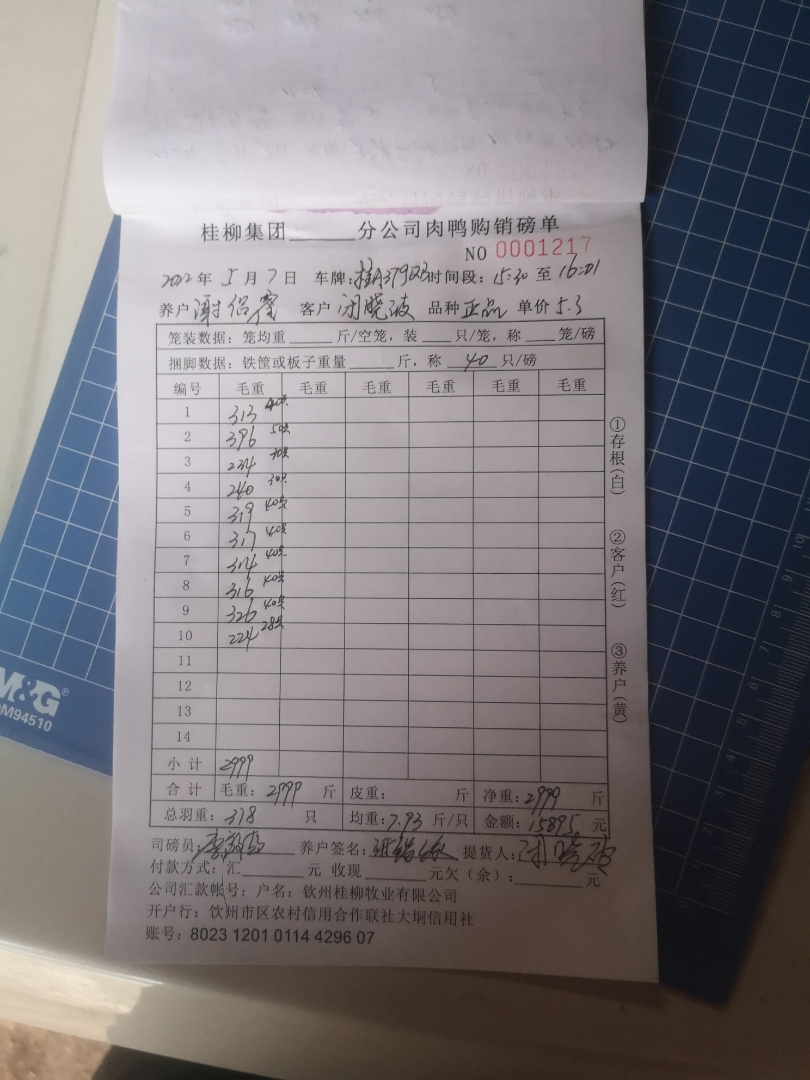 桂柳集团______分公司肉鸭购销磅单
NO 0001217
2022年5月7日 车牌: 时间段:15:30至16:01
养户 客户 闭晓波 品种 正品 单价 5.3
笼装数据:笼均重____斤/空笼,装___只/笼,称___笼/磅
捆脚数据:铁筐或板子重量____斤,称 40 只/磅
编号 毛重 毛重 毛重 毛重 毛重 毛重
1 313 40只
2 396 50只
3 234 30只
4 240 30只
5 319 40只
6 317 40只
7 314 40只
8 316 40只
9 326 40只
10 224 28只
11
12
13
14
小计 2999
合计 毛重:2999 斤 皮重: 斤 净重:2999 斤
总羽重:378 只 均重:7.93 斤/只 金额:15895 元
司磅员: 养户签名: 提货人:
付款方式:汇______元 收现______元欠(余):______元
公司汇款帐号:户名:钦州桂柳牧业有限公司
开户行:钦州市区农村信用合作联社大垌信用社
账号:8023 1201 0114 4296 07
①存根(白)
②客户(红)
③养户(黄)
M&G
94510